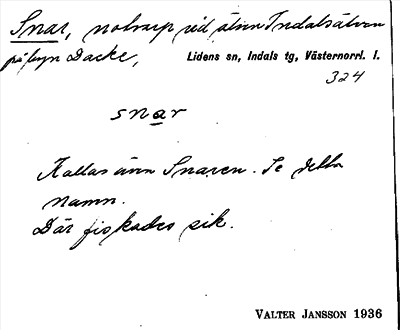 Snar, notvarp vid älven Indalsälven
på byn Dacke,
Lidens sn, Indals tg, Västernorrl. l.
324
snar
Kallas även Snaren. Se detta
namn.
Där fiskades sik.
VALTER JANSSON 1936